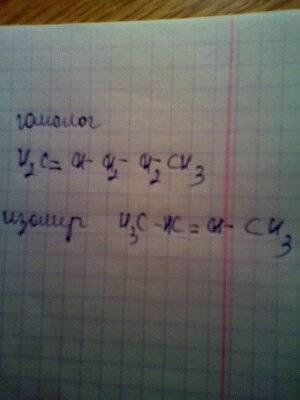 гомолог
H₂C= CH- CH₂- CH₂ CH₃
изомир H₃C -HC= CH- CH₃